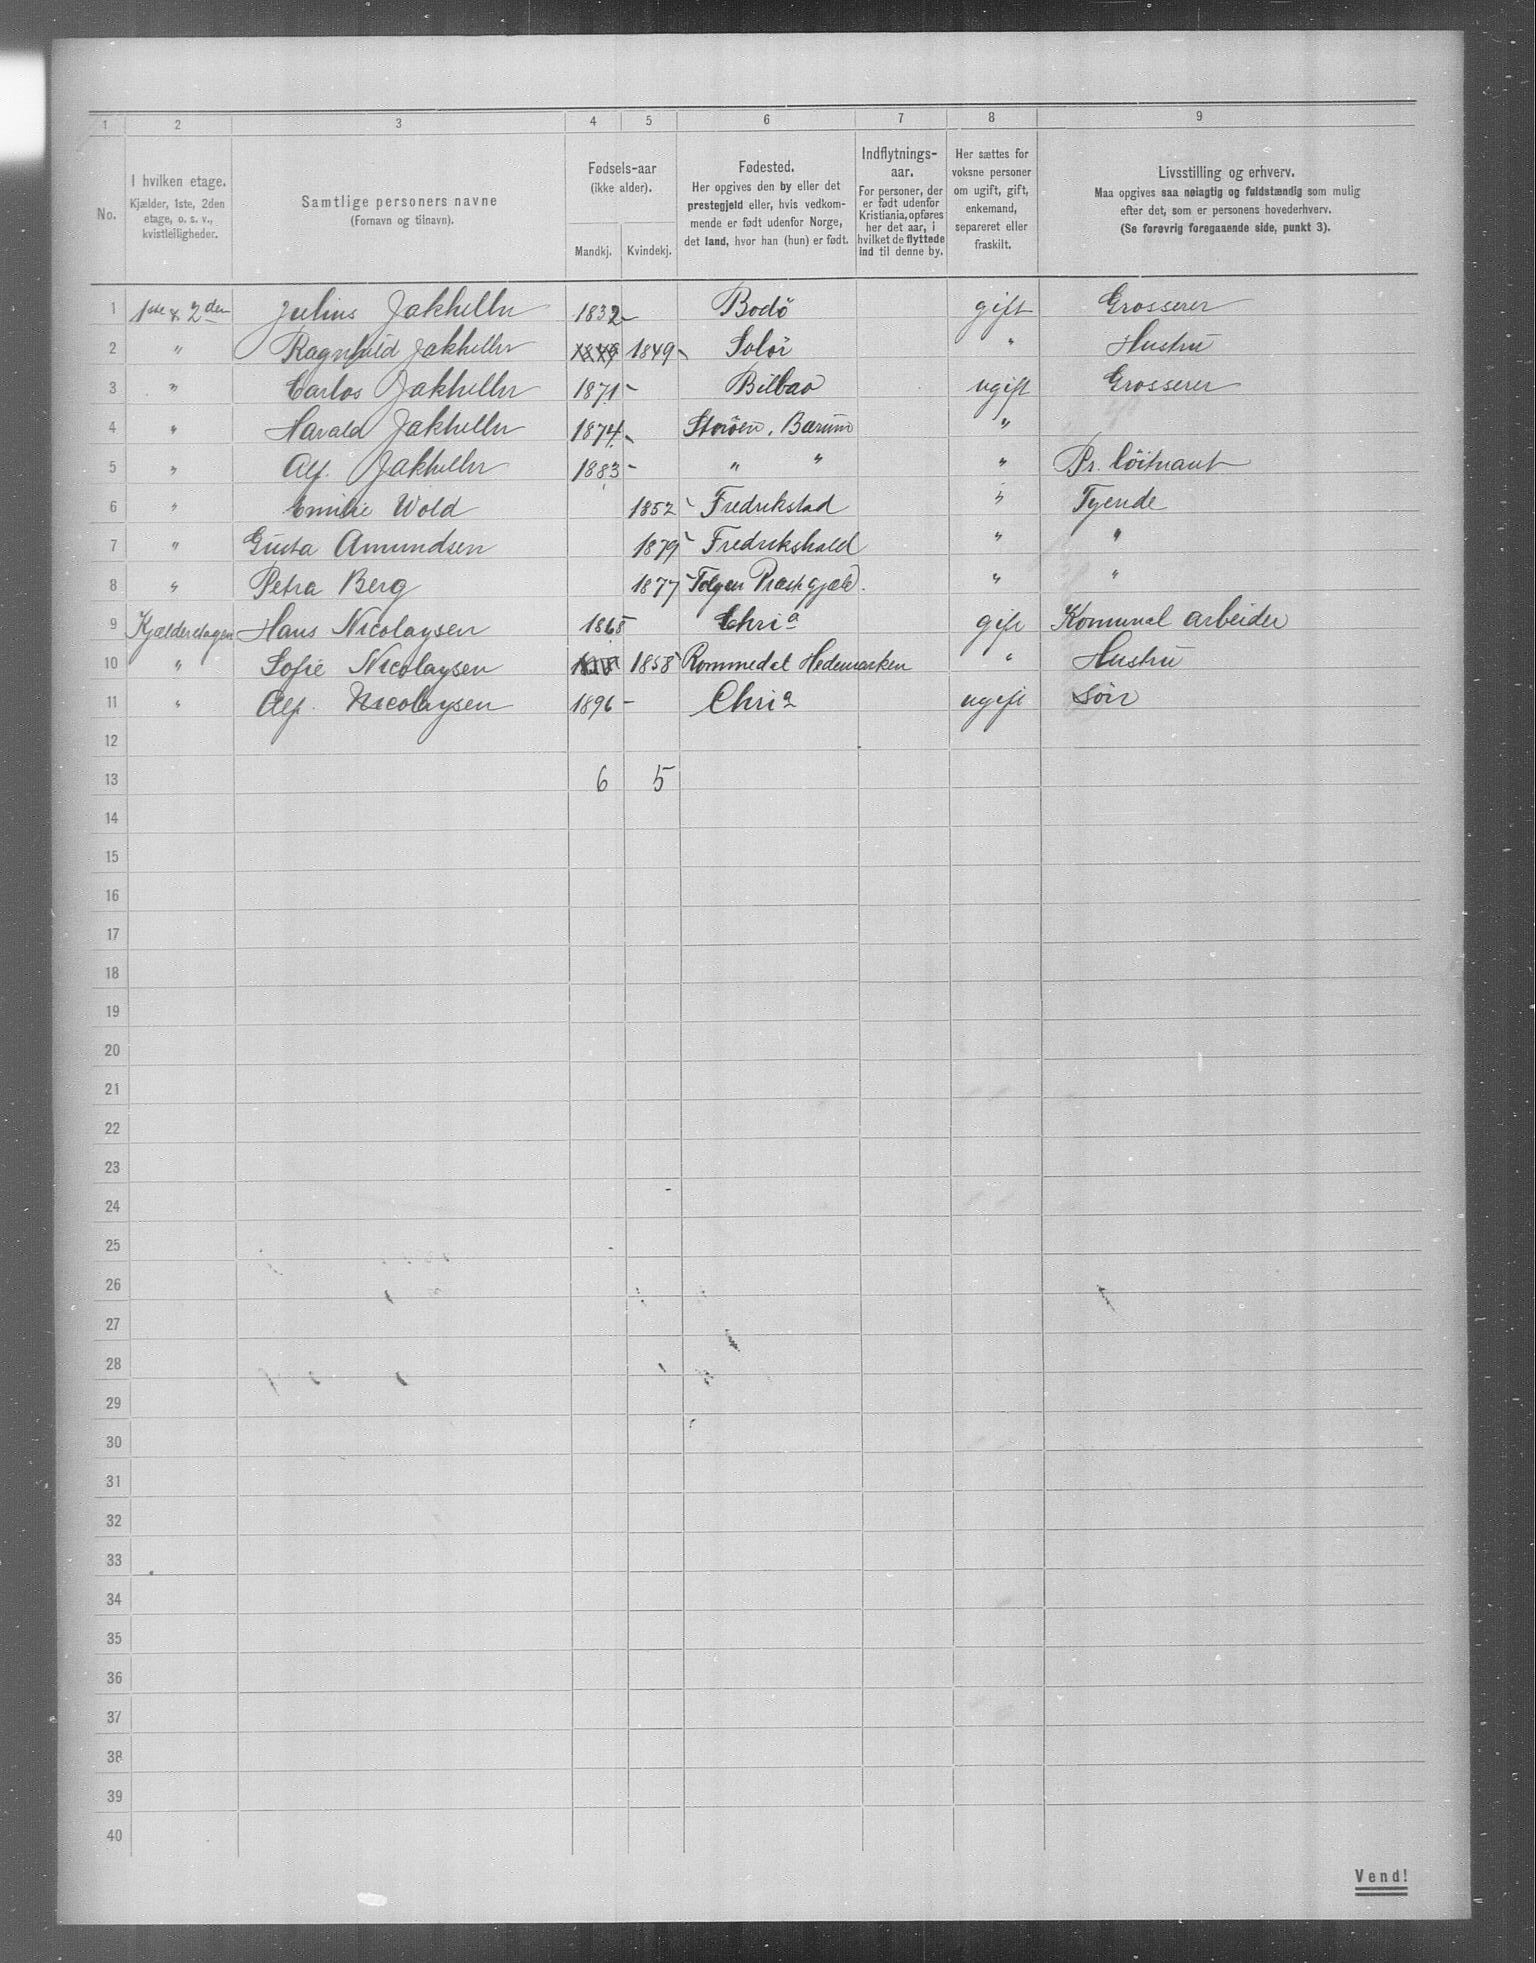 1 2 3 4 5 6 7 8 9
No.
I hvilken etage.
Kjælder, 1ste, 2den
etage, o. s. v.,
kvistleiligheder.
Samtlige personers navne
(Fornavn og tilnavn).
Fødsels-aar
(ikke alder).
Mandkj. Kvindekj.
Fødested.
Her opgives den by eller det
prestegjeld eller, hvis vedkom-
mende er født udenfor Norge,
det land, hvor han (hun) er født.
Indflytnings-
aar.
For personer, der
er født udenfor
Kristiania, opføres
her det aar, i
hvilket de flyttede
ind til denne by.
Her sættes for
voksne personer
om ugift, gift,
enkemand,
separeret eller
fraskilt.
Livsstilling og erhverv.
Maa opgives saa nøiagtig og fuldstændig som mulig
efter det, som er personens hovederhverv.
(Se forøvrig foregaaende side, punkt 3).
1 1ste & 2den Julius Jakhelln 1832 - Bodö gift Grosserer
2 " Ragnhild Jakhelln 1849 1849 - Solör " Hustru
3 " Carlos Jakhelln 1871 - Bilbao ugift Grosserer
4 " Harald Jakhelln 1874 - Storöen, Bærum "
5 " Alf. Jakhelln 1883 - " " " Pr. Löitnant
6 " Emilie Wold 1852 - Fredrikstad " Tyende
7 " Gusta Amundsen 1879 - Fredrikshald " "
8 " Petra Berg 1877 - Tolgen Præstgjæld. " "
9 Kjælderetagen Hans Nicolaysen 1868 - Chria gift Komunal arbeider
10 " Sofie Nicolaysen 1858 - Rommedal Hedemarken " Hustru
11 " Alf. Nicolaysen 1896 - Chria ugift Sön
12
13 6 5
14
15
16
17
18
19
20
21
22
23
24
25
26
27
28
29
30
31
32
33
34
35
36
37
38
39
40
Vend!